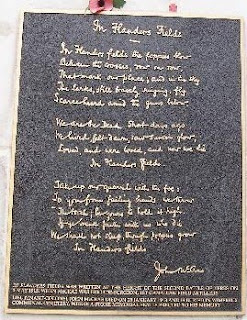 In Flanders Fields
In Flanders fields the poppies blow
Between the crosses, row on row
That mark our place; and in the sky
The larks, still bravely singing, fly
Scarce heard amid the guns below.
We are the Dead. Short days ago
We lived, felt dawn, saw sunset glow,
Loved, and were loved, and now we lie
In Flanders fields
Take up our quarrel with the foe:
To you from failing hands we throw
The torch; be yours to hold it high
If ye break faith with us who die
We shall not sleep, though poppies grow
In Flanders fields
John McCrae
IN FLANDERS FIELDS WAS WRITTEN OF THE SECOND BATTLE OF YPRES
LIEUTENANT-COLONEL JOHN MCCRAE DIED ON 28 JANUARY